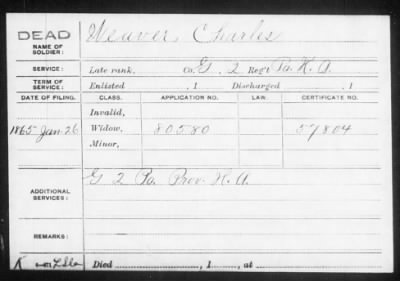 DEAD Weaver, Charles
NAME OF SOLDIER:
SERVICE: Late rank, Co. G, 2 Reg't Pa. H. A.
TERM OF SERVICE: Enlisted , 1 Discharged , 1
DATE OF FILING. CLASS. APPLICATION NO. LAW. CERTIFICATE NO.
Invalid,
1865 Jan 26 Widow, 80580 57804
Minor,
ADDITIONAL SERVICES: G 2 Pa Prov. H. A.
REMARKS:
Died , 1 , at